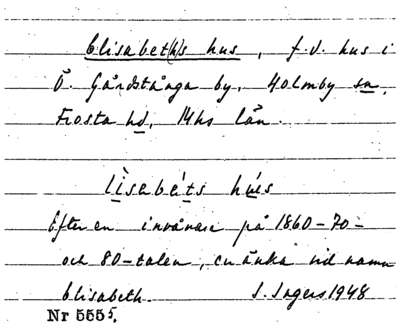 Elisabet(h)s hus, f.d. hus i
Ö. Gårdstånga by, Holmby sn,
Frosta hd, Mhs län.
lìsabéts hús
Efter en invånare på 1860-70-
och 80-talen, en änka vid namn
Elisabeth. I. Ingers 1948
Nr 5555.